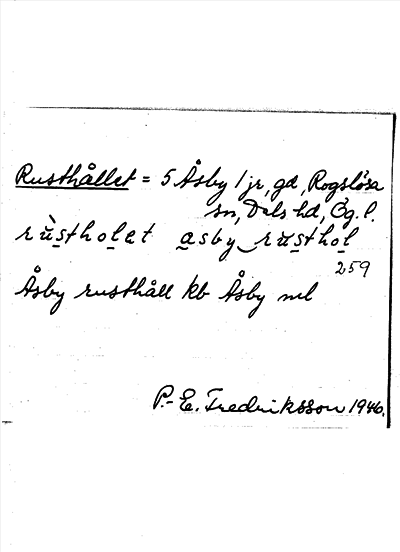 Rusthållet = 5 Åsby 1 jr, gd, Rogslösa
sn, Dals hd, Ög. l.
rù̀stholet asby rusthol
259
Åsby rusthåll kb Åsby ml
P.-E. Fredriksson 1946.